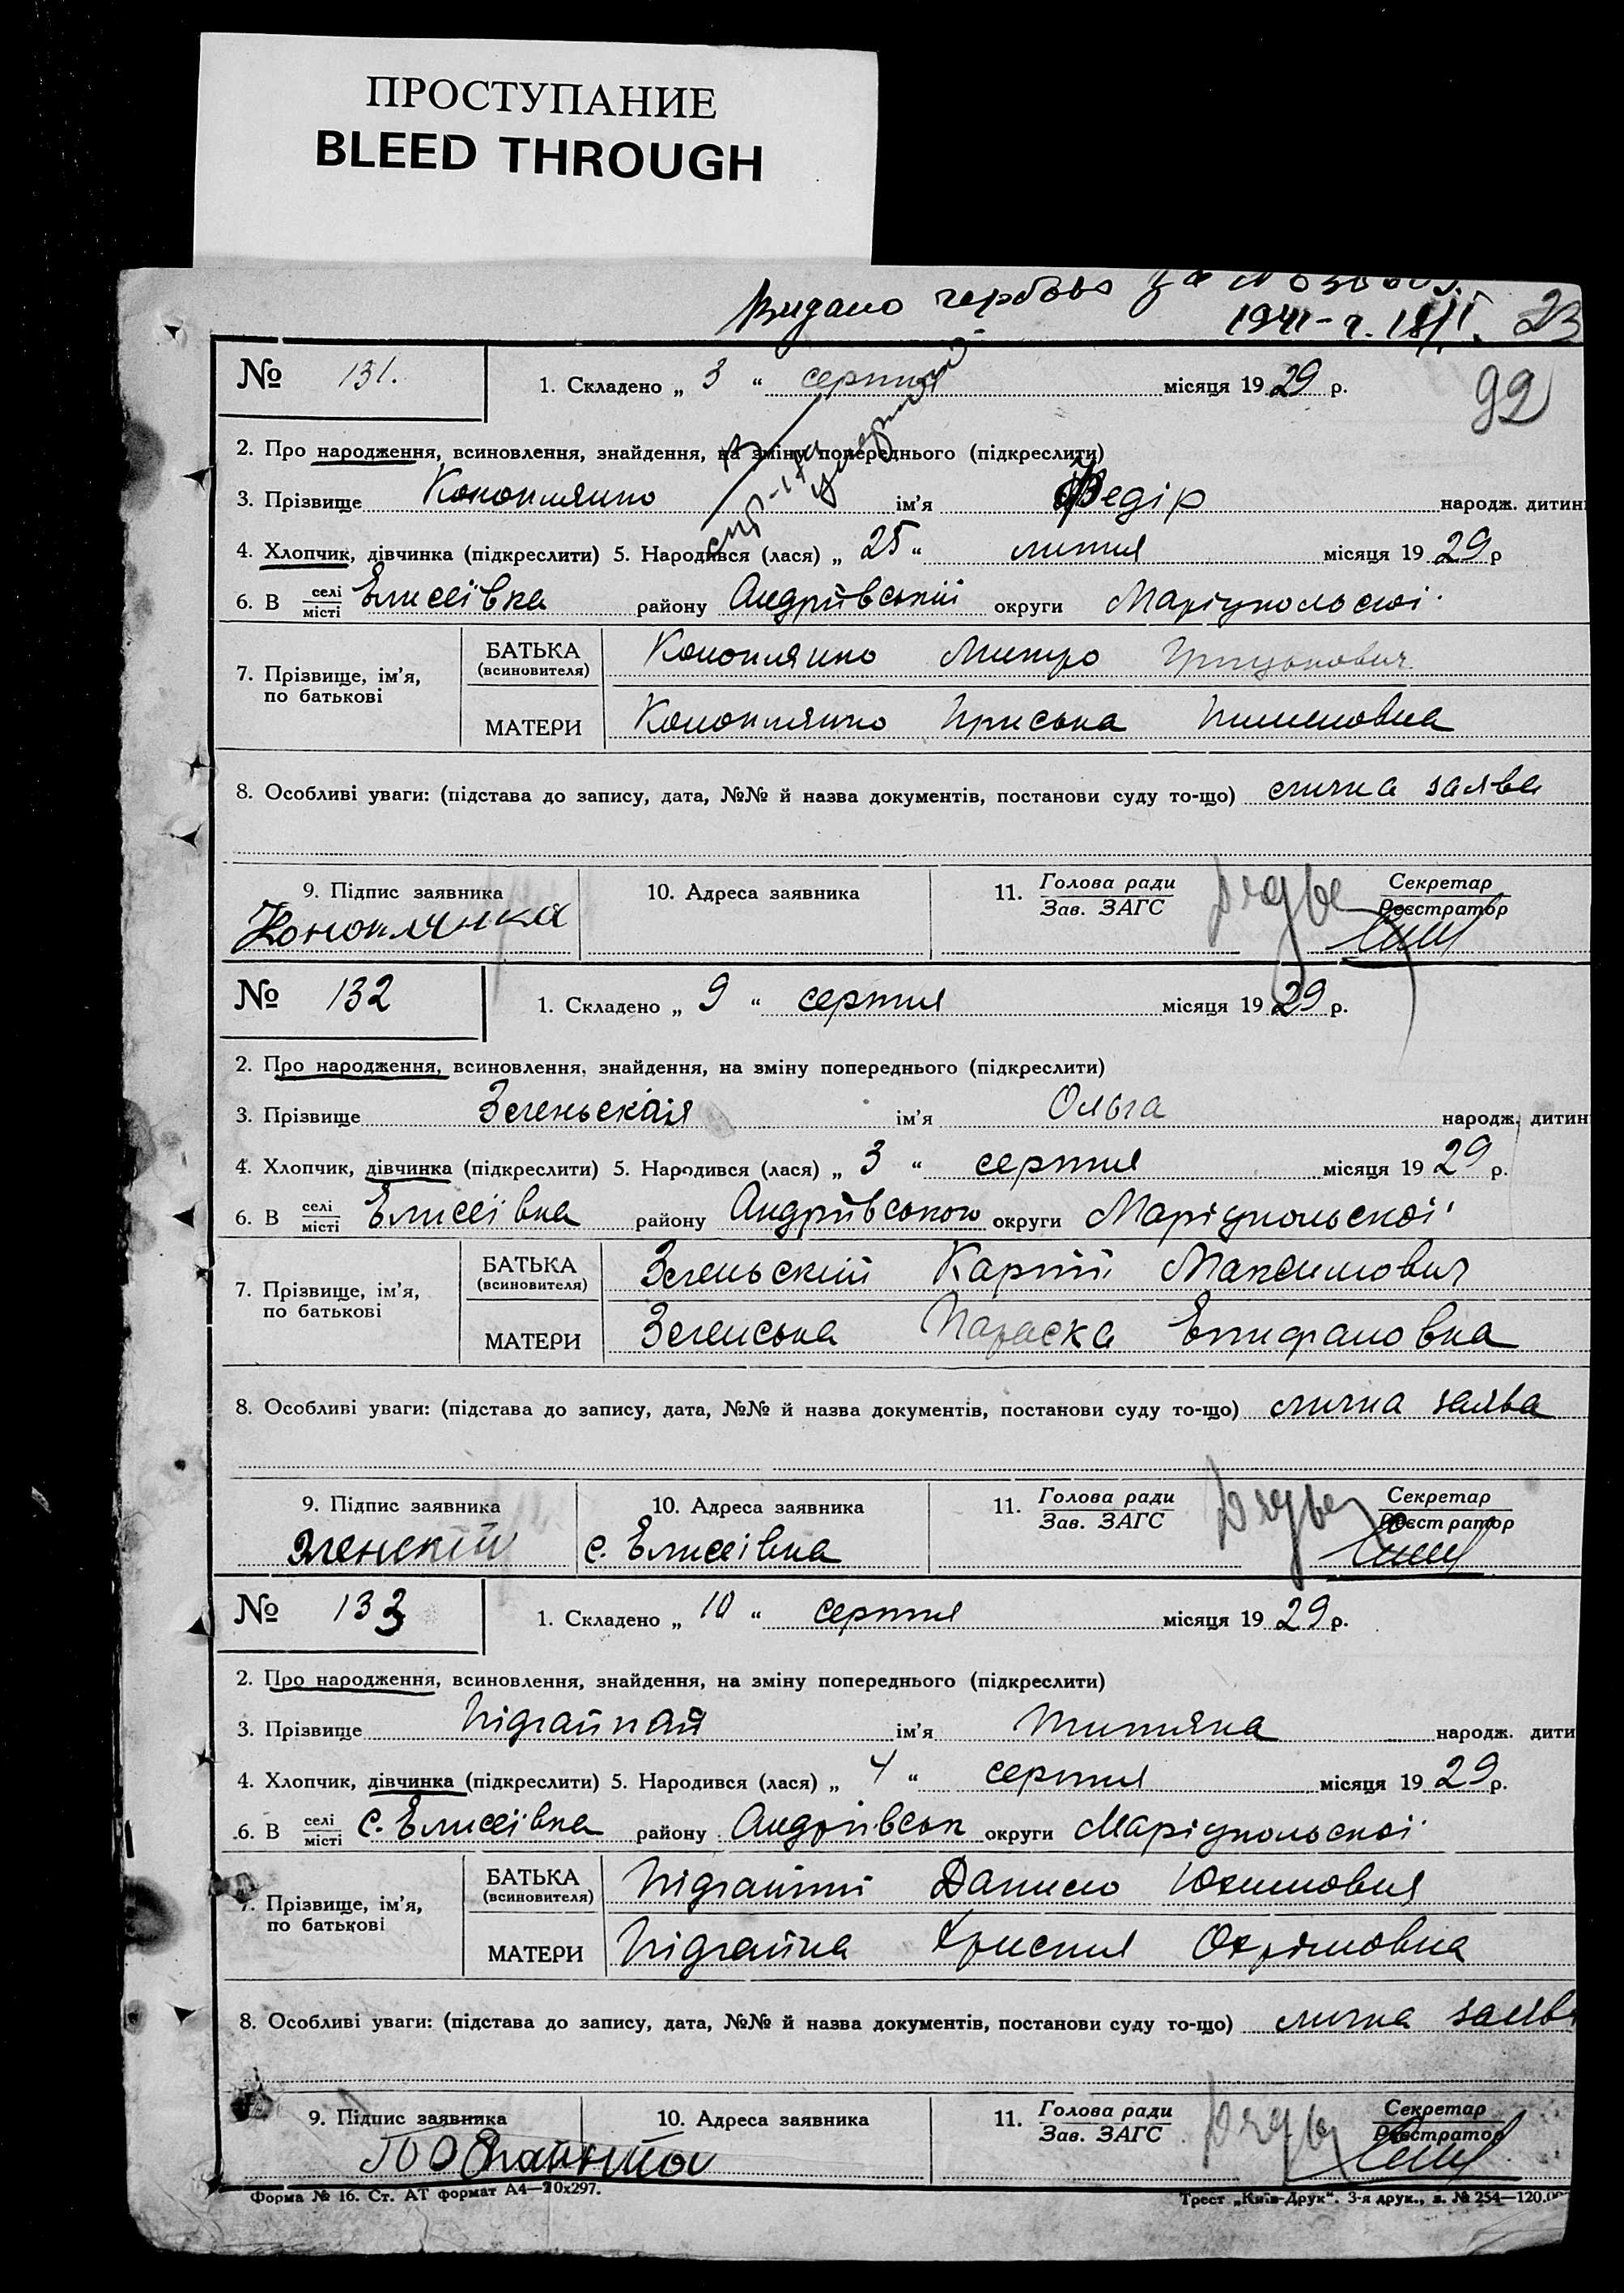 ПРОСТУПАНИЕ
BLEED THROUGH
Видано за №
1941-г. 23
92
№ 131.
1. Складено „ 3 “ серпня місяця 19 29 р.
2. Про народження, всиновлення, знайдення, на зміну попереднього (підкреслити)
3. Прізвище Конопляно ім’я Федір народж. дитин
4. Хлопчик, дівчинка (підкреслити) 5. Народився (лася) „ 25 “ липня місяця 19 29 р
6. В селі/місті Елисеївка району Андріївській округи Маріупольскої
7. Прізвище, ім’я, по батькові
БАТЬКА (всиновителя) Конопляно Митро Грицькович
МАТЕРИ Конопляно Приська Пименовна
8. Особливі уваги: (підстава до запису, дата, №№ й назва документів, постанови суду то-що) лична заява
9. Підпис заявника 10. Адреса заявника 11. Голова ради/Зав. ЗАГС Секретар/Реєстратор
Коноплянка
№ 132
1. Складено „ 9 “ серпня місяця 19 29 р.
2. Про народження, всиновлення, знайдення, на зміну попереднього (підкреслити)
3. Прізвище Зеленьская ім’я Ольга народж. дитин
4. Хлопчик, дівчинка (підкреслити) 5. Народився (лася) „ 3 “ серпня місяця 19 29 р.
6. В селі/місті Елисеївка району Андріївського округи Маріупольскої
7. Прізвище, ім’я, по батькові
БАТЬКА (всиновителя) Зеленьский Карпій Максимович
МАТЕРИ Зеленська Параска Епифановна
8. Особливі уваги: (підстава до запису, дата, №№ й назва документів, постанови суду то-що) лична заява
9. Підпис заявника 10. Адреса заявника 11. Голова ради/Зав. ЗАГС Секретар/Реєстратор
с. Елисеівка
№ 133
1. Складено „ 10 “ серпня місяця 19 29 р.
2. Про народження, всиновлення, знайдення, на зміну попереднього (підкреслити)
3. Прізвище Підгайная ім’я Титяна народж. дити
4. Хлопчик, дівчинка (підкреслити) 5. Народився (лася) „ 4 “ серпня місяця 19 29 р.
6. В селі/місті с. Елисеївка району Андріївськ округи Маріупольскої
7. Прізвище, ім’я, по батькові
БАТЬКА (всиновителя) Підгайний Данило Юхимович
МАТЕРИ Підгайна Христя Охрімовна
8. Особливі уваги: (підстава до запису, дата, №№ й назва документів, постанови суду то-що) лична заяв
9. Підпис заявника 10. Адреса заявника 11. Голова ради/Зав. ЗАГС Секретар/Реєстратор
Форма № 16. Ст. АТ формат А4—210х297. Трест „Київ-Друк“. 3-я друк., з. № 254—120.00